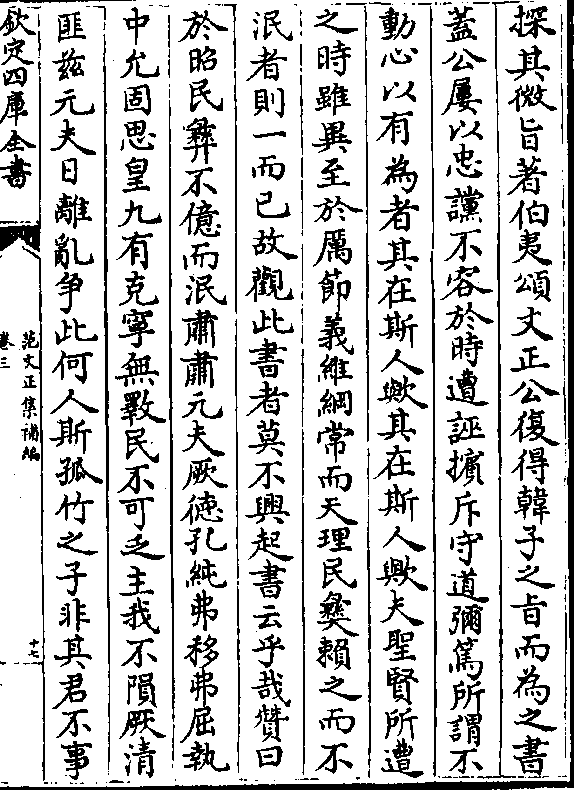 探其微旨著伯夷頌文正公復得韓子之旨而為之書
蓋公屢以忠讜不容於時遭誣擯斥守道彌篤所謂不
動心以有為者其在斯人歟其在斯人歟夫聖賢所遭
之時雖異至於厲節義維綱常而天理民彝賴之而不
泯者則一而已故觀此書者莫不興起書云乎哉贊曰
於昭民彝不億而泯肅肅元夫厥德孔純弗移弗屈執
中允固思皇九有克寧無斁民不可乏主我不隕厥清
匪兹元夫日離亂爭此何人斯孤竹之子非其君不事
欽定四庫全書
范文正集補編
卷三
十七